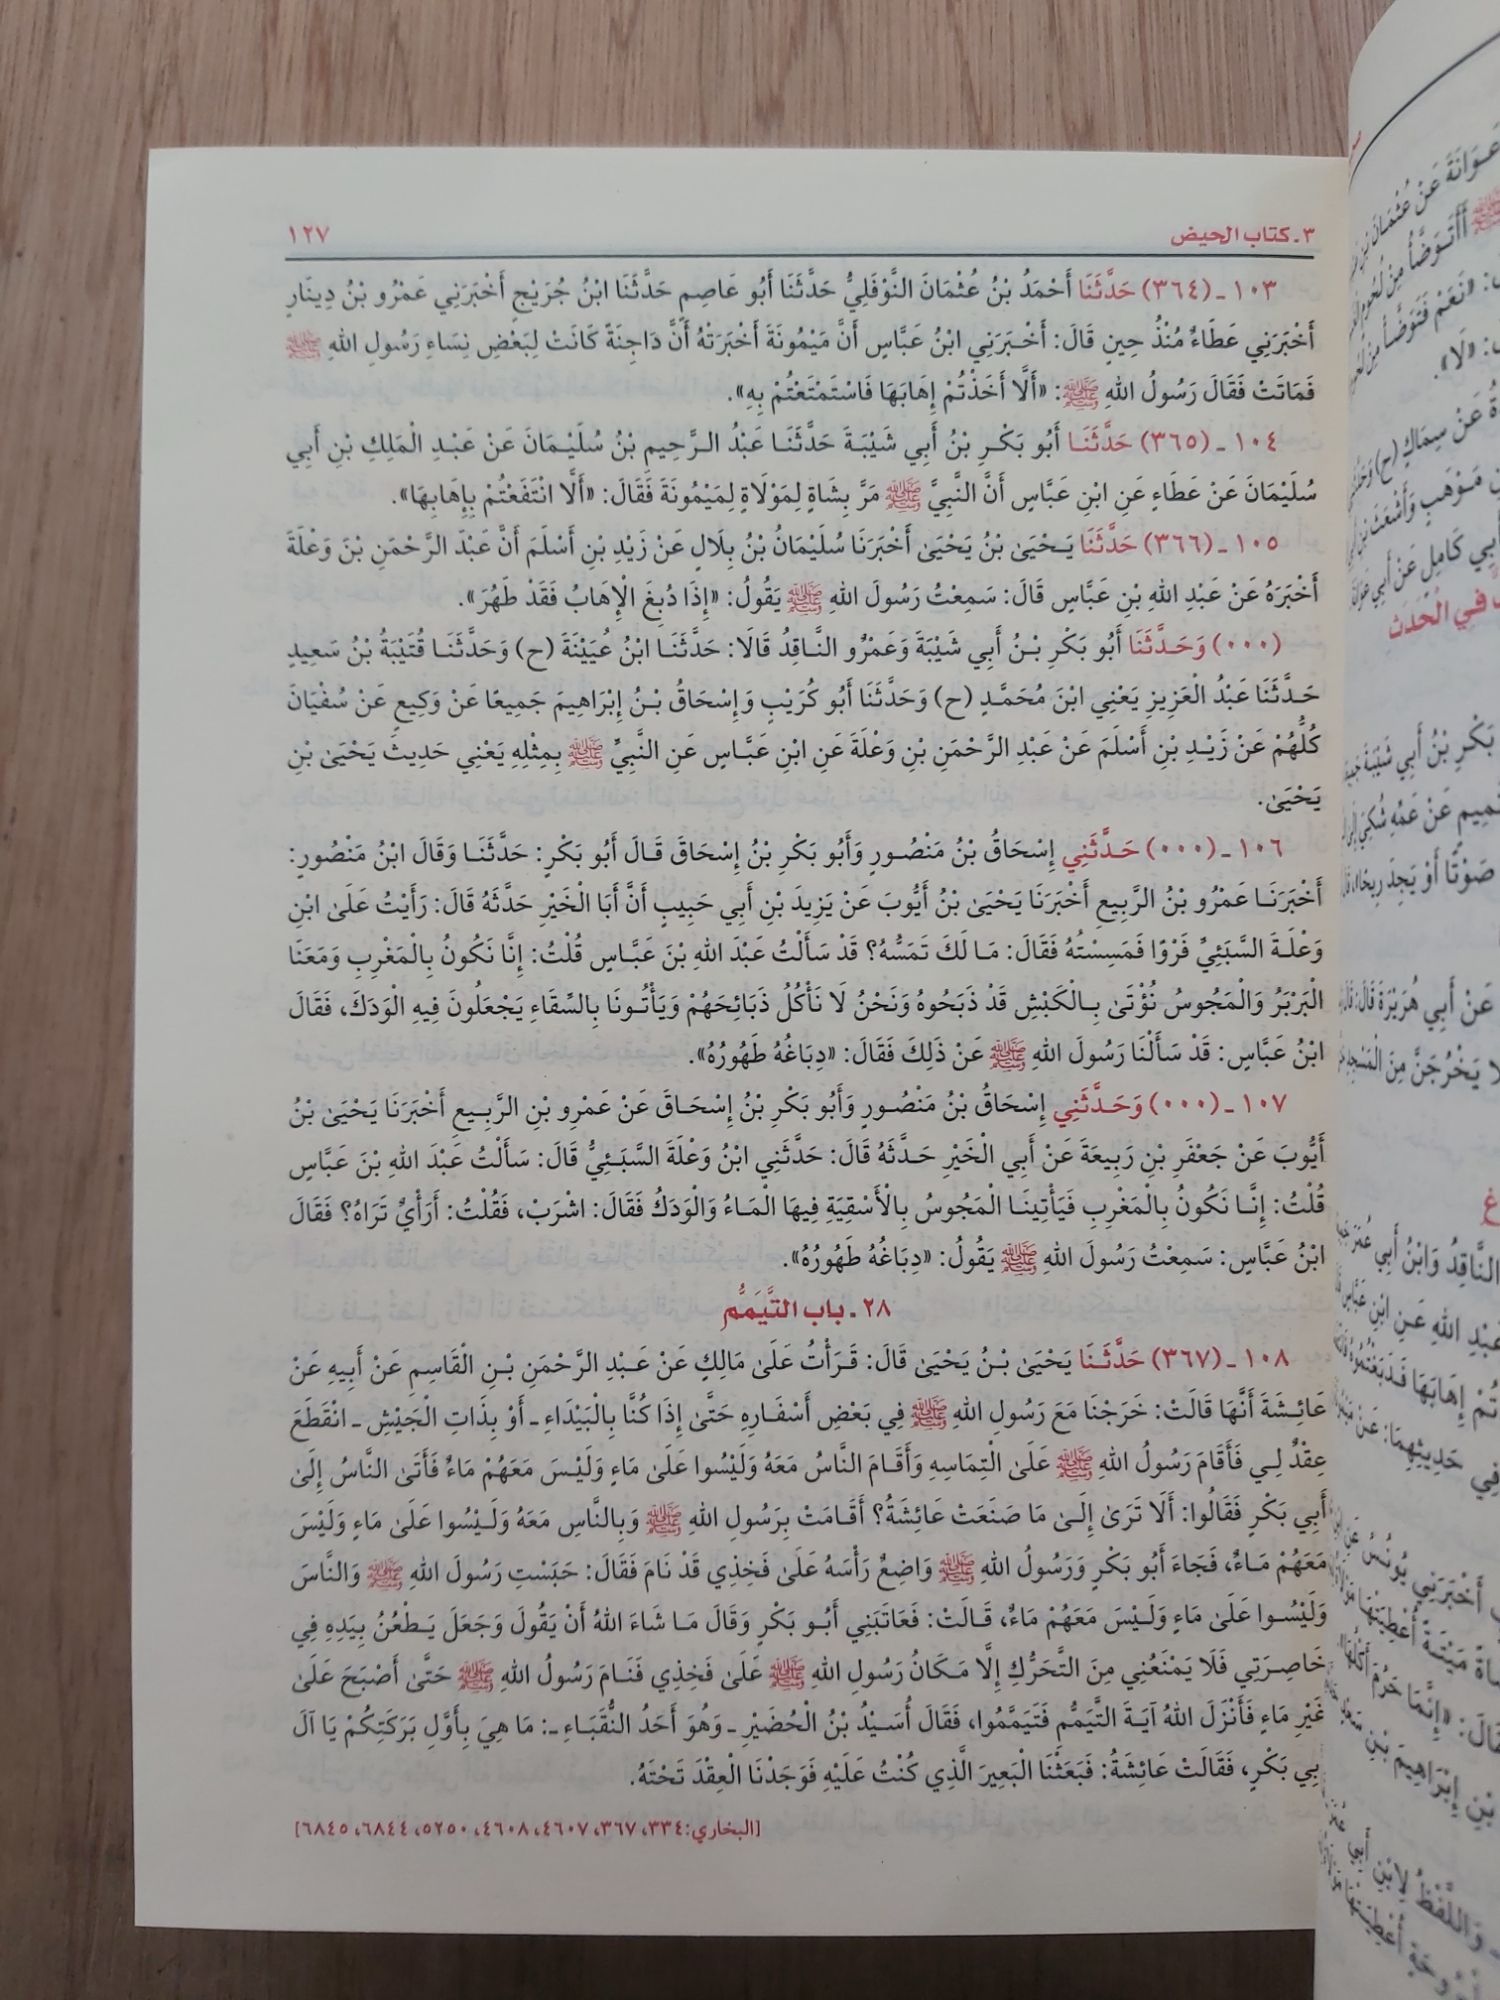 ٣ - كتاب الحيض ١٢٧
١٠٣ - (٣٦٤) حَدَّثَنَا أَحْمَدُ بْنُ عُثْمَانَ النَّوْفَلِيُّ حَدَّثَنَا أَبُو عَاصِمٍ حَدَّثَنَا ابْنُ جُرَيْجٍ أَخْبَرَنِي عَمْرُو بْنُ دِينَارٍ
أَخْبَرَنِي عَطَاءٌ مُنْذُ حِينٍ قَالَ: أَخْبَرَنِي ابْنُ عَبَّاسٍ أَنَّ مَيْمُونَةَ أَخْبَرَتْهُ أَنَّ دَاجِنَةً كَانَتْ لِبَعْضِ نِسَاءِ رَسُولِ اللهِ ﷺ
فَمَاتَتْ فَقَالَ رَسُولُ اللهِ ﷺ: «أَلَّا أَخَذْتُمْ إِهَابَهَا فَاسْتَمْتَعْتُمْ بِهِ».
١٠٤ - (٣٦٥) حَدَّثَنَا أَبُو بَكْرِ بْنُ أَبِي شَيْبَةَ حَدَّثَنَا عَبْدُ الرَّحِيمِ بْنُ سُلَيْمَانَ عَنْ عَبْدِ الْمَلِكِ بْنِ أَبِي
سُلَيْمَانَ عَنْ عَطَاءٍ عَنِ ابْنِ عَبَّاسٍ أَنَّ النَّبِيَّ ﷺ مَرَّ بِشَاةٍ لِمَوْلَاةٍ لِمَيْمُونَةَ فَقَالَ: «أَلَّا انْتَفَعْتُمْ بِإِهَابِهَا».
١٠٥ - (٣٦٦) حَدَّثَنَا يَحْيَىٰ بْنُ يَحْيَىٰ أَخْبَرَنَا سُلَيْمَانُ بْنُ بِلَالٍ عَنْ زَيْدِ بْنِ أَسْلَمَ أَنَّ عَبْدَ الرَّحْمَنِ بْنَ وَعْلَةَ
أَخْبَرَهُ عَنْ عَبْدِ اللهِ بْنِ عَبَّاسٍ قَالَ: سَمِعْتُ رَسُولَ اللهِ ﷺ يَقُولُ: «إِذَا دُبِغَ الْإِهَابُ فَقَدْ طَهُرَ».
(٠٠٠) وَحَدَّثَنَا أَبُو بَكْرِ بْنُ أَبِي شَيْبَةَ وَعَمْرٌو النَّاقِدُ قَالَا: حَدَّثَنَا ابْنُ عُيَيْنَةَ (ح) وَحَدَّثَنَا قُتَيْبَةُ بْنُ سَعِيدٍ
حَدَّثَنَا عَبْدُ الْعَزِيزِ يَعْنِي ابْنَ مُحَمَّدٍ (ح) وَحَدَّثَنَا أَبُو كُرَيْبٍ وَإِسْحَاقُ بْنُ إِبْرَاهِيمَ جَمِيعًا عَنْ وَكِيعٍ عَنْ سُفْيَانَ
كُلُّهُمْ عَنْ زَيْدِ بْنِ أَسْلَمَ عَنْ عَبْدِ الرَّحْمَنِ بْنِ وَعْلَةَ عَنِ ابْنِ عَبَّاسٍ عَنِ النَّبِيِّ ﷺ بِمِثْلِهِ يَعْنِي حَدِيثَ يَحْيَىٰ بْنِ
يَحْيَىٰ.
١٠٦ - (٠٠٠) حَدَّثَنِي إِسْحَاقُ بْنُ مَنْصُورٍ وَأَبُو بَكْرِ بْنُ إِسْحَاقَ قَالَ أَبُو بَكْرٍ: حَدَّثَنَا وَقَالَ ابْنُ مَنْصُورٍ:
أَخْبَرَنَا عَمْرُو بْنُ الرَّبِيعِ أَخْبَرَنَا يَحْيَىٰ بْنُ أَيُّوبَ عَنْ يَزِيدَ بْنِ أَبِي حَبِيبٍ أَنَّ أَبَا الْخَيْرِ حَدَّثَهُ قَالَ: رَأَيْتُ عَلَىٰ ابْنِ
وَعْلَةَ السَّبَئِيِّ فَرْوًا فَمَسِسْتُهُ فَقَالَ: مَا لَكَ تَمَسُّهُ؟ قَدْ سَأَلْتُ عَبْدَ اللهِ بْنَ عَبَّاسٍ قُلْتُ: إِنَّا نَكُونُ بِالْمَغْرِبِ وَمَعَنَا
الْبَرْبَرُ وَالْمَجُوسُ نُؤْتَىٰ بِالْكَبْشِ قَدْ ذَبَحُوهُ وَنَحْنُ لَا نَأْكُلُ ذَبَائِحَهُمْ وَيَأْتُونَا بِالسِّقَاءِ يَجْعَلُونَ فِيهِ الْوَدَكَ، فَقَالَ
ابْنُ عَبَّاسٍ: قَدْ سَأَلْنَا رَسُولَ اللهِ ﷺ عَنْ ذَلِكَ فَقَالَ: «دِبَاغُهُ طَهُورُهُ».
١٠٧ - (٠٠٠) وَحَدَّثَنِي إِسْحَاقُ بْنُ مَنْصُورٍ وَأَبُو بَكْرِ بْنُ إِسْحَاقَ عَنْ عَمْرِو بْنِ الرَّبِيعِ أَخْبَرَنَا يَحْيَىٰ بْنُ
أَيُّوبَ عَنْ جَعْفَرِ بْنِ رَبِيعَةَ عَنْ أَبِي الْخَيْرِ حَدَّثَهُ قَالَ: حَدَّثَنِي ابْنُ وَعْلَةَ السَّبَئِيُّ قَالَ: سَأَلْتُ عَبْدَ اللهِ بْنَ عَبَّاسٍ
قُلْتُ: إِنَّا نَكُونُ بِالْمَغْرِبِ فَيَأْتِينَا الْمَجُوسُ بِالْأَسْقِيَةِ فِيهَا الْمَاءُ وَالْوَدَكُ فَقَالَ: اشْرَبْ، فَقُلْتُ: أَرَأْيٌ تَرَاهُ؟ فَقَالَ
ابْنُ عَبَّاسٍ: سَمِعْتُ رَسُولَ اللهِ ﷺ يَقُولُ: «دِبَاغُهُ طَهُورُهُ».
٢٨ - باب التَّيَمُّم
١٠٨ - (٣٦٧) حَدَّثَنَا يَحْيَىٰ بْنُ يَحْيَىٰ قَالَ: قَرَأْتُ عَلَىٰ مَالِكٍ عَنْ عَبْدِ الرَّحْمَنِ بْنِ الْقَاسِمِ عَنْ أَبِيهِ عَنْ
عَائِشَةَ أَنَّهَا قَالَتْ: خَرَجْنَا مَعَ رَسُولِ اللهِ ﷺ فِي بَعْضِ أَسْفَارِهِ حَتَّىٰ إِذَا كُنَّا بِالْبَيْدَاءِ - أَوْ بِذَاتِ الْجَيْشِ - انْقَطَعَ
عِقْدٌ لِي فَأَقَامَ رَسُولُ اللهِ ﷺ عَلَىٰ الْتِمَاسِهِ وَأَقَامَ النَّاسُ مَعَهُ وَلَيْسُوا عَلَىٰ مَاءٍ وَلَيْسَ مَعَهُمْ مَاءٌ فَأَتَىٰ النَّاسُ إِلَىٰ
أَبِي بَكْرٍ فَقَالُوا: أَلَا تَرَىٰ إِلَىٰ مَا صَنَعَتْ عَائِشَةُ؟ أَقَامَتْ بِرَسُولِ اللهِ ﷺ وَبِالنَّاسِ مَعَهُ وَلَيْسُوا عَلَىٰ مَاءٍ وَلَيْسَ
مَعَهُمْ مَاءٌ، فَجَاءَ أَبُو بَكْرٍ وَرَسُولُ اللهِ ﷺ وَاضِعٌ رَأْسَهُ عَلَىٰ فَخِذِي قَدْ نَامَ فَقَالَ: حَبَسْتِ رَسُولَ اللهِ ﷺ وَالنَّاسَ
وَلَيْسُوا عَلَىٰ مَاءٍ وَلَيْسَ مَعَهُمْ مَاءٌ، قَالَتْ: فَعَاتَبَنِي أَبُو بَكْرٍ وَقَالَ مَا شَاءَ اللهُ أَنْ يَقُولَ وَجَعَلَ يَطْعُنُ بِيَدِهِ فِي
خَاصِرَتِي فَلَا يَمْنَعُنِي مِنَ التَّحَرُّكِ إِلَّا مَكَانُ رَسُولِ اللهِ ﷺ عَلَىٰ فَخِذِي فَنَامَ رَسُولُ اللهِ ﷺ حَتَّىٰ أَصْبَحَ عَلَىٰ
غَيْرِ مَاءٍ فَأَنْزَلَ اللهُ آيَةَ التَّيَمُّمِ فَتَيَمَّمُوا، فَقَالَ أُسَيْدُ بْنُ الْحُضَيْرِ - وَهُوَ أَحَدُ النُّقَبَاءِ -: مَا هِيَ بِأَوَّلِ بَرَكَتِكُمْ يَا آلَ
بِي بَكْرٍ، فَقَالَتْ عَائِشَةُ: فَبَعَثْنَا الْبَعِيرَ الَّذِي كُنْتُ عَلَيْهِ فَوَجَدْنَا الْعِقْدَ تَحْتَهُ.
[البخاري: ٣٣٤، ٣٦٧، ٤٦٠٧، ٤٦٠٨، ٥٢٥٠، ٦٨٤٤، ٦٨٤٥]